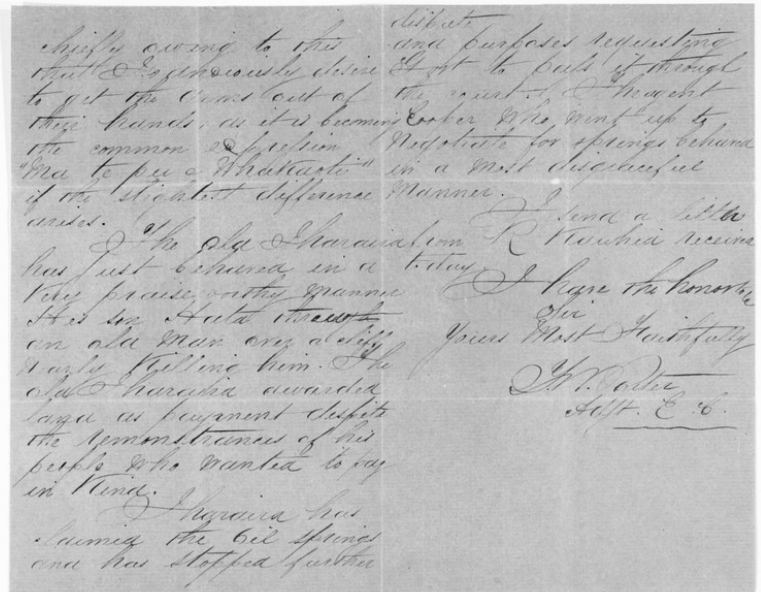 chiefs owing to this
that I anxiously desire
to get the arms out of
their hands, as it is becoming
the common expression
"Ma te pu e Whakaoti"
if the slightest difference
arises.
The old Iharaira
has just behaved in a
very praiseworthy manner
His son Hata threw
an old man over a cliff
nearly killing him. The
old Ihararia awarded
land as payment despite
the remonstrances of his
people who wanted to pay
in kind.
Iharaira has
claimed the Oil springs
and has stopped further
dispute
and purposes requesting
to pass it through
the court.
Cooper who went up to
negotiate for springs behaved
in a most disgraceful
manner.
I send a letter
from R received
today
I have the honor to be
Sir
Yours Most Faithfully
T. W. Porter
Adjt. E. C.